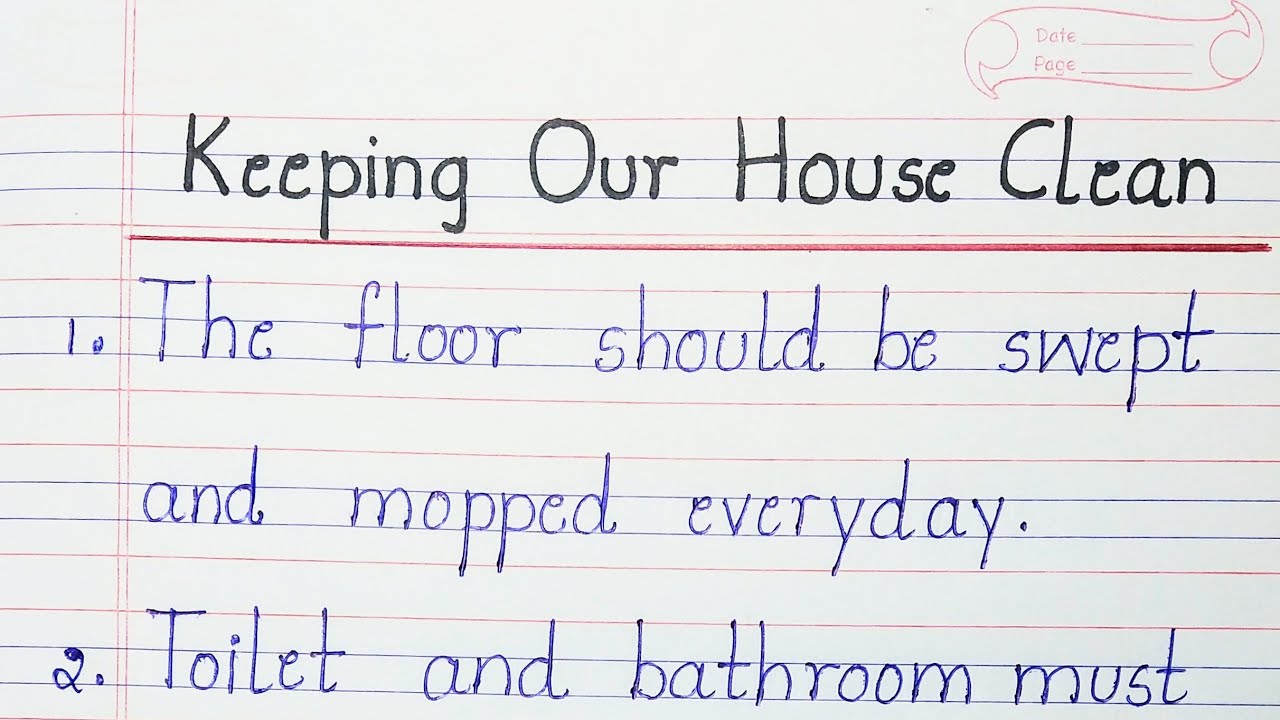 Date
Page
Keeping Our House Clean
1. The floor should be swept
and mopped everyday.
2. Toilet and bathroom must